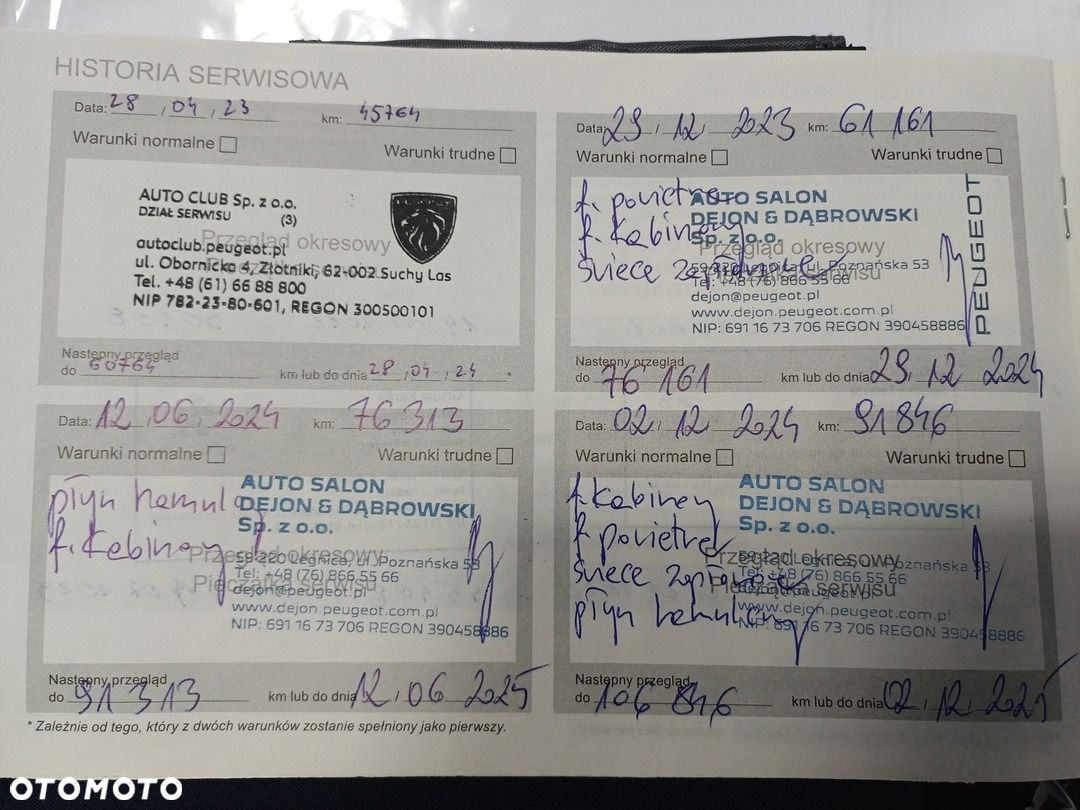 HISTORIA SERWISOWA
Data: 28 / 04 / 23 km: 45764
Warunki normalne
Warunki trudne
AUTO CLUB Sp. z o.o.
DZIAŁ SERWISU (3)
PEUGEOT
autoclub.peugeot.pl
Przegląd okresowy
ul. Obornicka 4, Złotniki, 62-002 Suchy Las
Tel. +48 (61) 66 88 800
NIP 782-23-80-601, REGON 300500101
Następny przegląd
do 60764 km lub do dnia 28 / 04 / 24
Data: 29 / 12 / 2023 km: 61 161
Warunki normalne
Warunki trudne
f. powietrza
f. kabinowy
świece zapłonowe
AUTO SALON
DEJON & DĄBROWSKI
Sp. z o.o.
Przegląd okresowy
59-220 Legnica, ul. Poznańska 53
Pieczątka serwisu
Tel: +48 (76) 866 55 66
dejon@peugeot.pl
www.dejon.peugeot.com.pl
NIP: 691 16 73 706 REGON 390458886
PEUGEOT
Następny przegląd
do 76 161 km lub do dnia 29. 12 2024
Data: 12 / 06 / 2024 km: 76 313
Warunki normalne
Warunki trudne
płyn hamulc
f. kabinowy
AUTO SALON
DEJON & DĄBROWSKI
Sp. z o.o.
Przegląd okresowy
59-220 Legnica, ul. Poznańska 53
Tel: +48 (76) 866 55 66
Pieczątka serwisu
dejon@peugeot.pl
www.dejon.peugeot.com.pl
NIP: 691 16 73 706 REGON 390458886
Następny przegląd
do 91 313 km lub do dnia 12 / 06 2025
Data: 02 / 12 / 2024 km: 91 846
Warunki normalne
Warunki trudne
f. kabinowy
f. powietrza
świece zapłonowe
płyn hamulcowy
AUTO SALON
DEJON & DĄBROWSKI
Sp. z o.o.
Przegląd okresowy
59-220 Legnica, ul. Poznańska 53
Tel: +48 (76) 866 55 66
Pieczątka serwisu
dejon@peugeot.pl
www.dejon.peugeot.com.pl
NIP: 691 16 73 706 REGON 390458886
Następny przegląd
do 106 846 km lub do dnia 02 / 12 / 2025
* Zależnie od tego, który z dwóch warunków zostanie spełniony jako pierwszy.
OTOMOTO